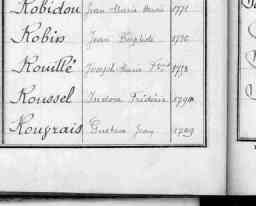 Robidou Jean Marie 1771
Robin Jean Baptiste 1780
Rouillé Joseph Marie 1773
Roussel Isidore Frédéric 1794
Rougrais Gustave Jean 1789